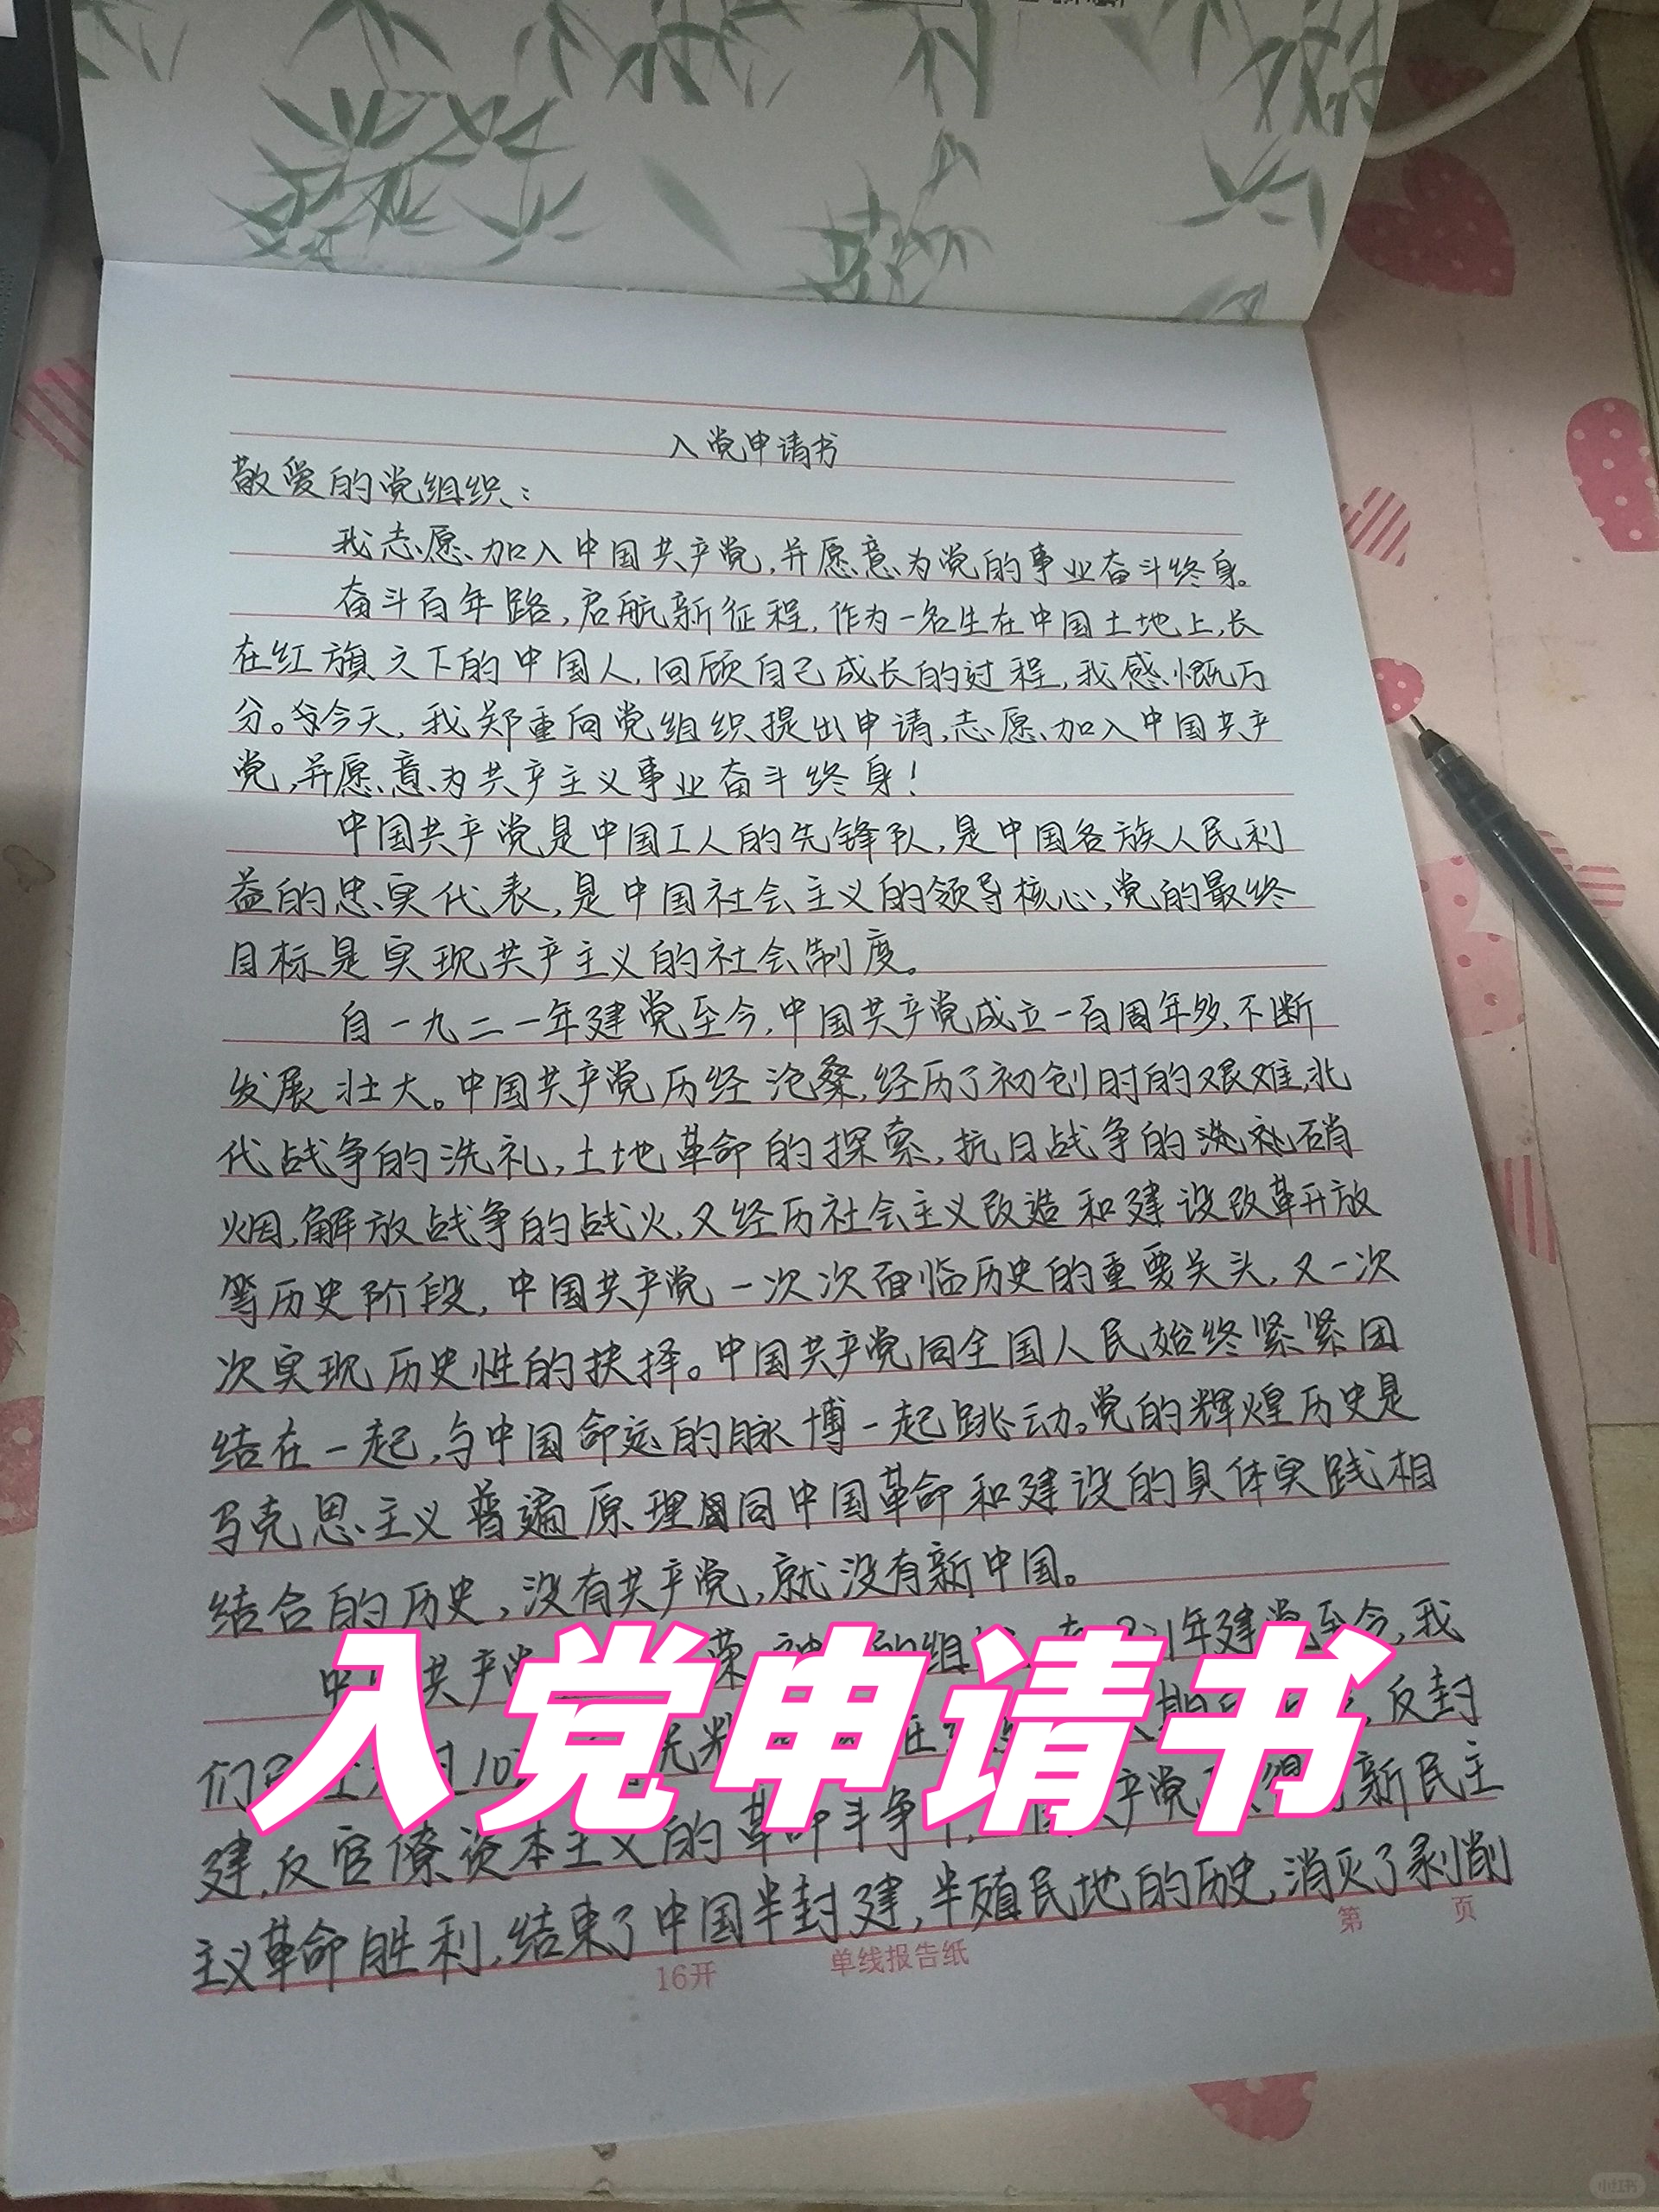 入党申请书
敬爱的党组织：
我志愿加入中国共产党,并愿意为党的事业奋斗终身。
奋斗百年路,启航新征程,作为一名生在中国土地上,长
在红旗之下的中国人,回顾自己成长的过程,我感慨万
分。今天,我郑重向党组织提出申请,志愿加入中国共产
党,并愿意为共产主义事业奋斗终身!
中国共产党是中国工人的先锋队,是中国各族人民利
益的忠实代表,是中国社会主义的领导核心,党的最终
目标是实现共产主义的社会制度。
自一九二一年建党至今,中国共产党成立一百周年多,不断
发展壮大。中国共产党历经沧桑,经历了初创时的艰难,北
代战争的洗礼,土地革命的探索,抗日战争的硝
烟,解放战争的战火,又经历社会主义改造和建设改革开放
等历史阶段,中国共产党一次次面临历史的重要关头,又一次
次实现历史性的抉择。中国共产党同全国人民始终紧紧团
结在一起,与中国命运的脉博一起跳动。党的辉煌历史是
马克思主义普遍原理同中国革命和建设的具体实践相
结合的历史,没有共产党,就没有新中国。
共产党 的组 年建党至今,我
们 10 反封
建,反官僚资本主义的革命斗争 产党 新民主
主义革命胜利,结束了中国半封建,半殖民地的历史,消灭了剥削
入党申请书
16开 单线报告纸 第 页
小红书